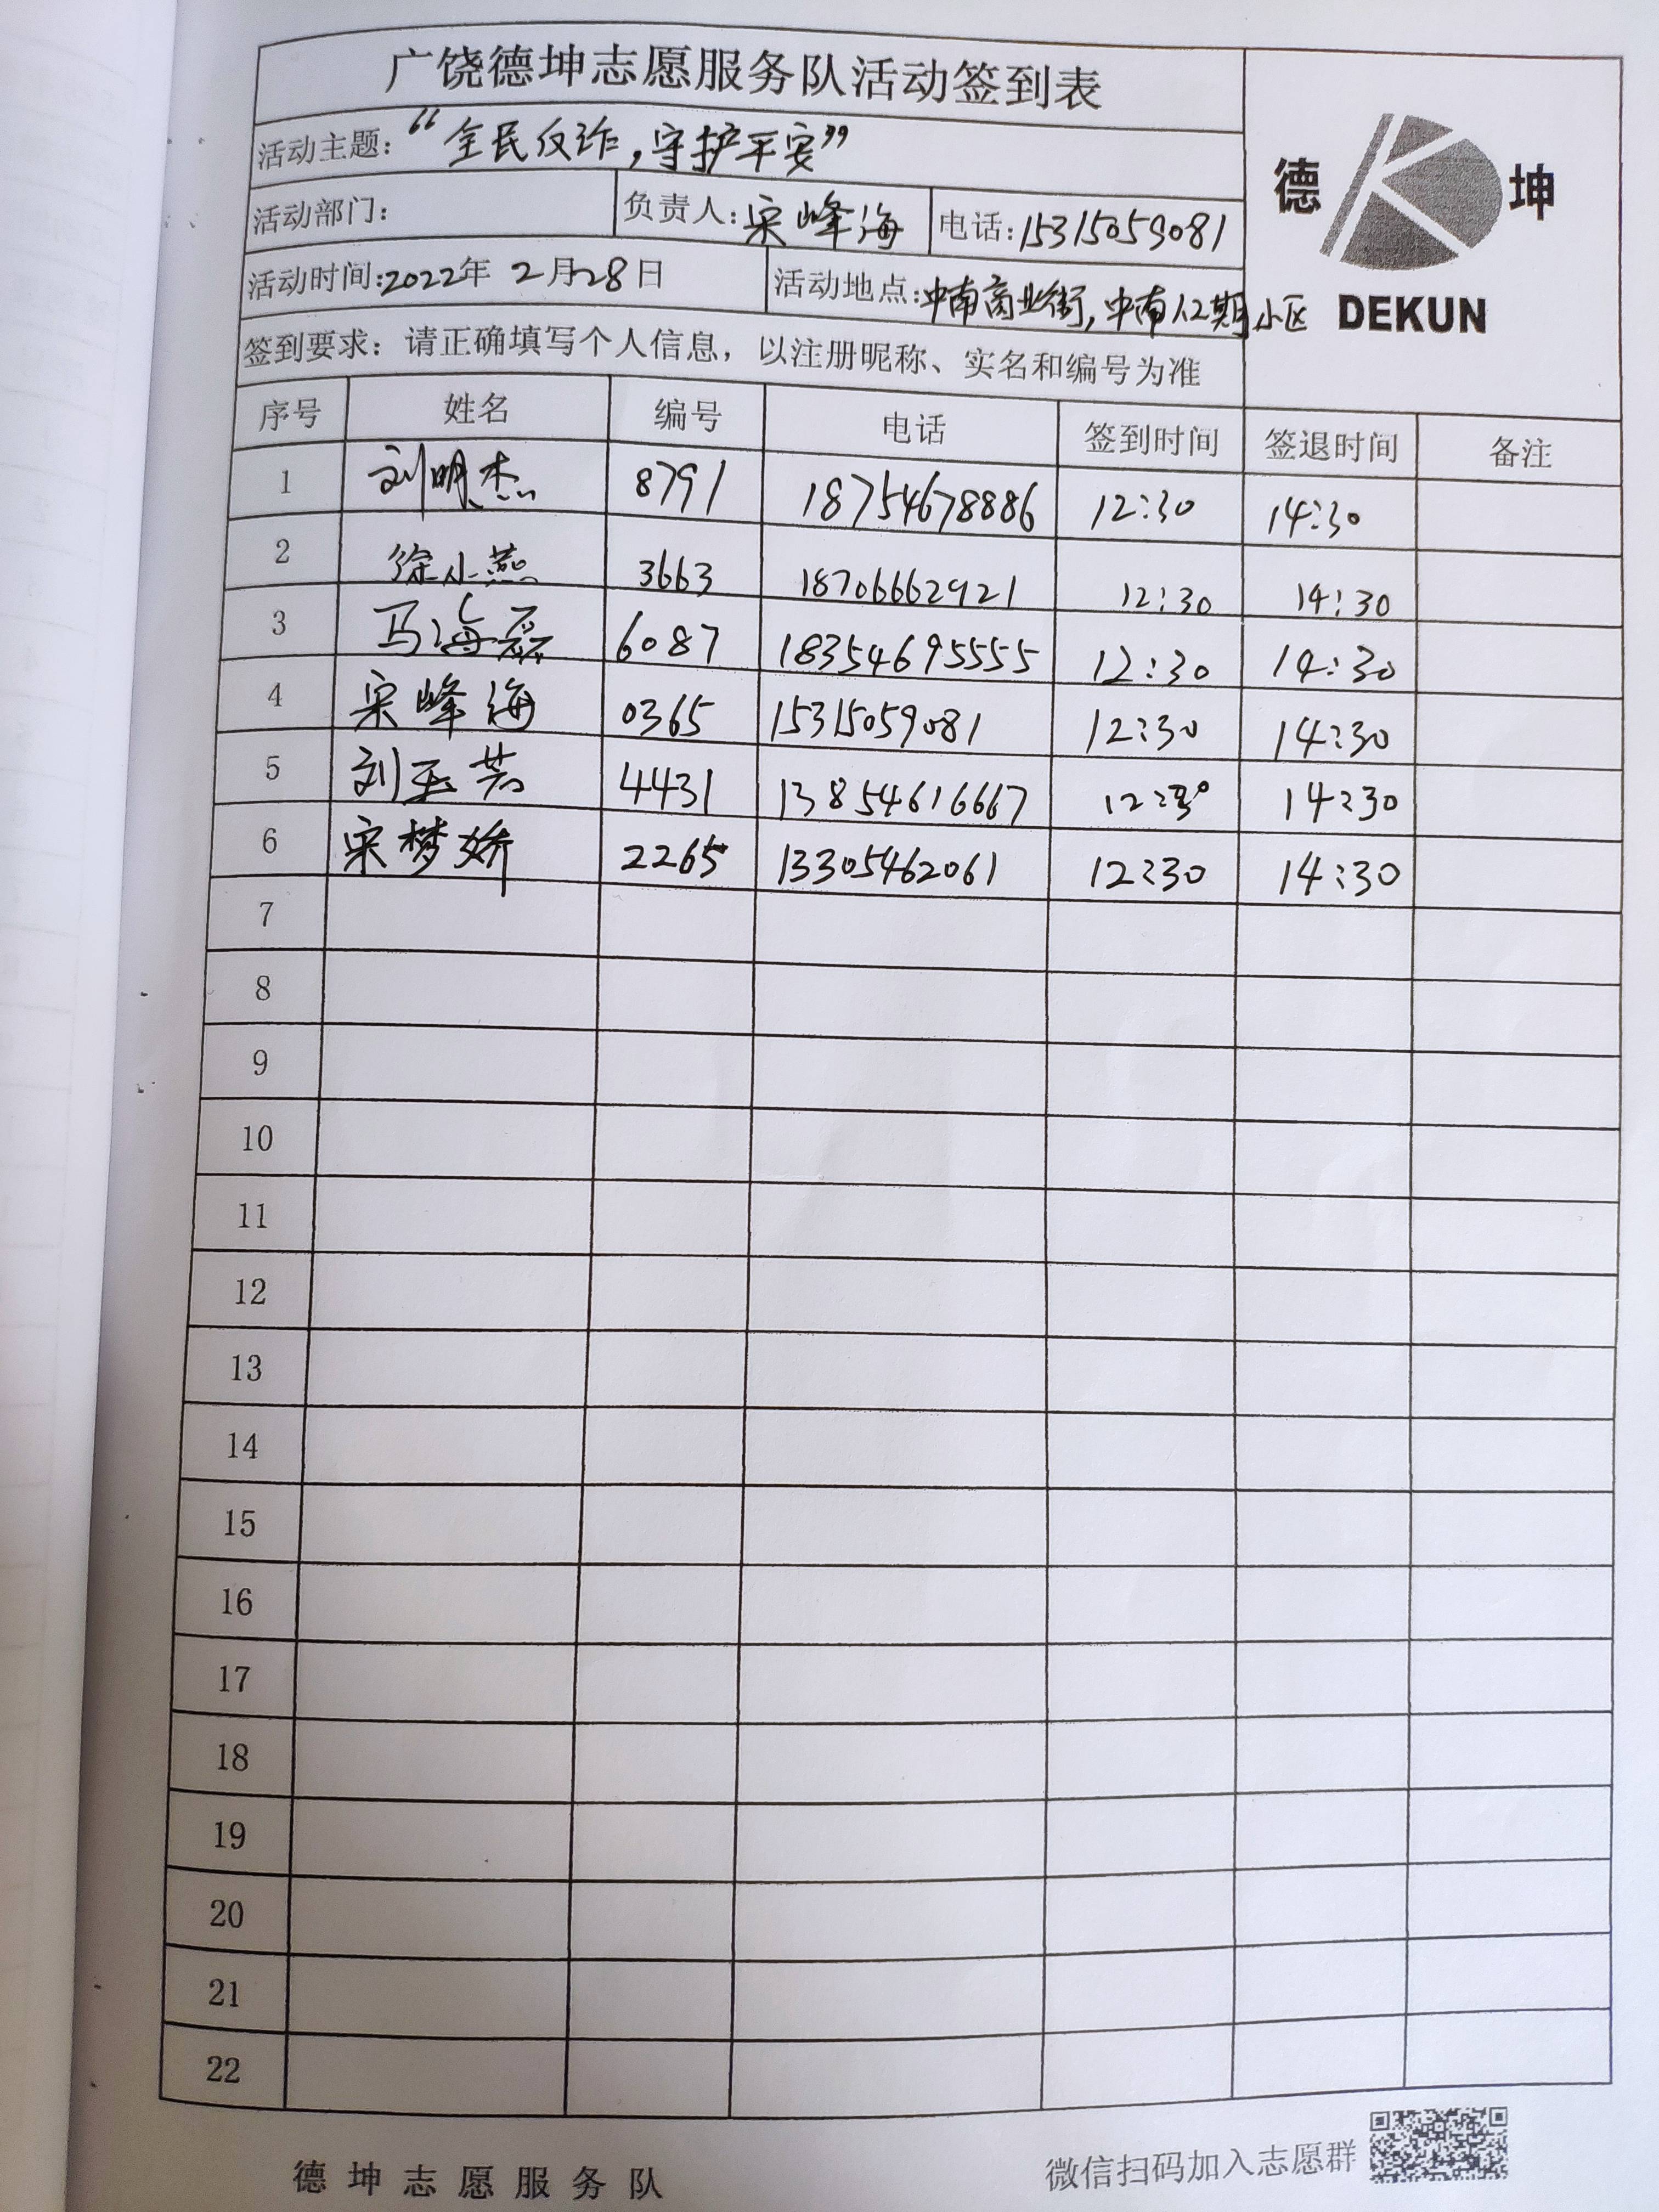 广饶德坤志愿服务队活动签到表
活动主题：“全民反诈，守护平安”
德 坤
活动部门： 负责人：宋峰海 电话：15315059081
活动时间：2022年 2月28日 活动地点：中南商业街，中南1.2期小区
DEKUN
签到要求：请正确填写个人信息，以注册昵称、实名和编号为准
序号 姓名 编号 电话 签到时间 签退时间 备注
1 刘明杰 8791 18754678886 12:30 14:30
2 徐小燕 3663 18706662921 12:30 14:30
3 马海磊 6087 18354695555 12:30 14:30
4 宋峰海 0365 15315059081 12:30 14:30
5 刘玉芳 4431 13854616667 12:30 14:30
6 宋梦娇 2265 13305462061 12:30 14:30
7
8
9
10
11
12
13
14
15
16
17
18
19
20
21
22
德坤志愿服务队 微信扫码加入志愿群